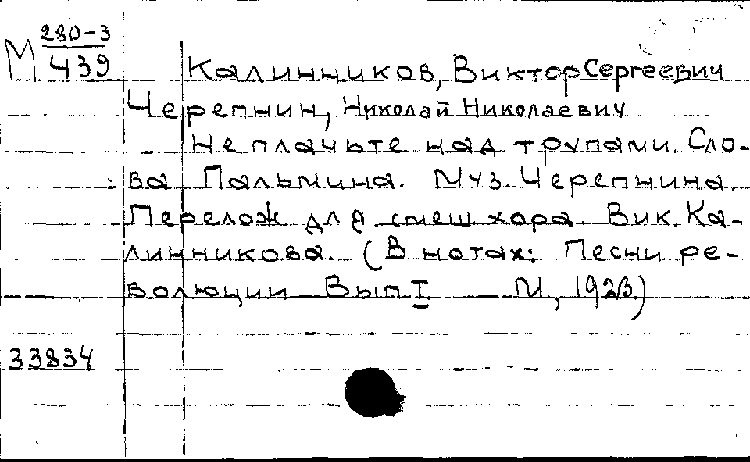 М 280-3
439
Калинников, Виктор Сергеевич
Черепнин, Николай Николаевич
Не плачьте над трупами. Сло-
ва Пальмина. Муз. Черепнина.
Перелож для смеш хора Вик. Ка-
линникова. (В нотах: Песни ре-
волюции Вып. I М,
33834